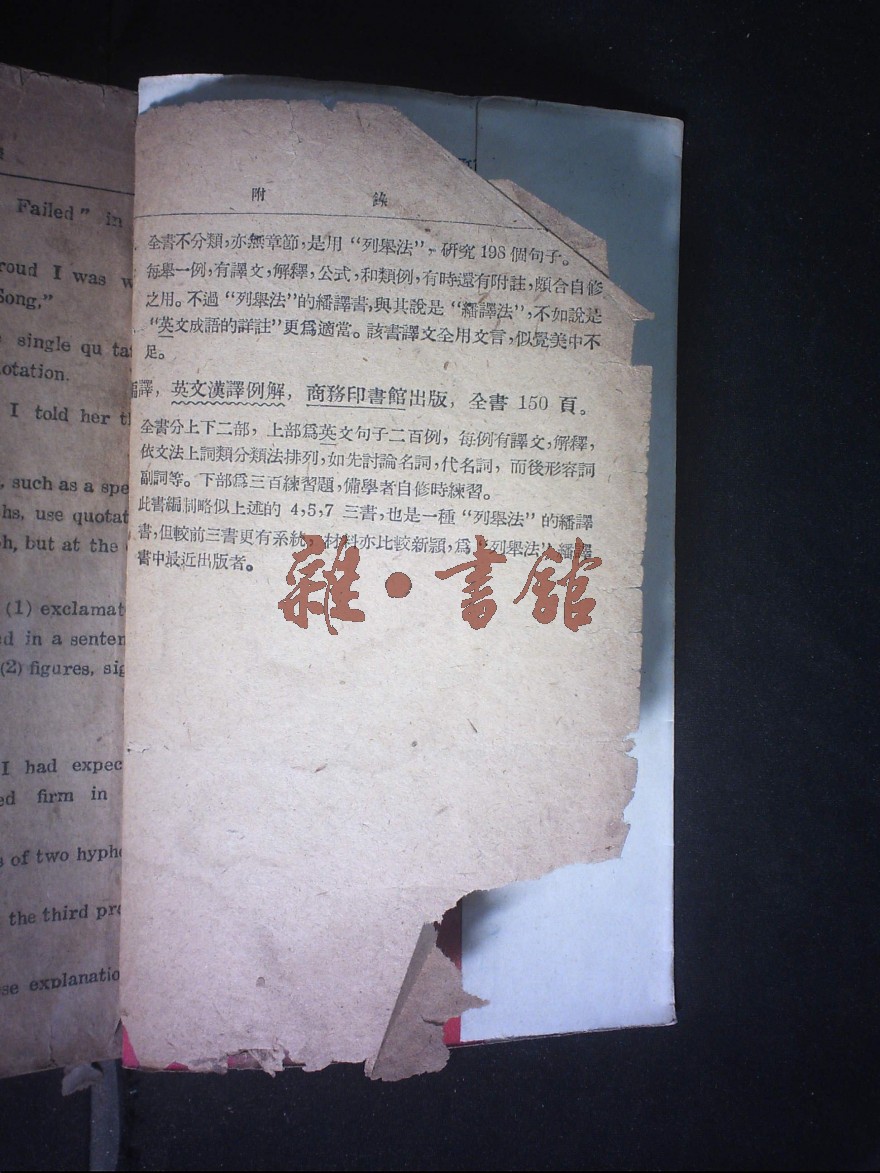 Failed" in
roud I was w
Song,"
single qu ta
otation.
I told her th
, such as a spe
hs, use quotat
h, but at the
(1) exclamat
d in a senten
(2) figures, sig
I had expec
ed firm in
s of two hyphe
the third pra
se explanatio
附 錄
全書不分類,亦無章節,是用“列舉法”,研究 198 個句子。
每舉一例,有譯文,解釋,公式,和類例,有時還有附註,頗合自修
之用。不過“列舉法”的繙譯書,與其說是“繙譯法”,不如說是
“英文成語的詳註”更爲適當。該書譯文全用文言,似覺美中不
足。
譯, 英文漢譯例解, 商務印書館出版, 全書 150 頁。
全書分上下二部, 上部爲英文句子二百例, 每例有譯文,解釋,
依文法上詞類分類法排列,如先討論名詞,代名詞, 而後形容詞
副詞等。下部爲三百練習題,備學者自修時練習。
此書編制略似上述的 4,5,7 三書,也是一種“列舉法”的繙譯
書,但較前三書更有系統, 材料亦比較新穎,爲“列舉法”繙譯
書中最近出版者。
雜·書館